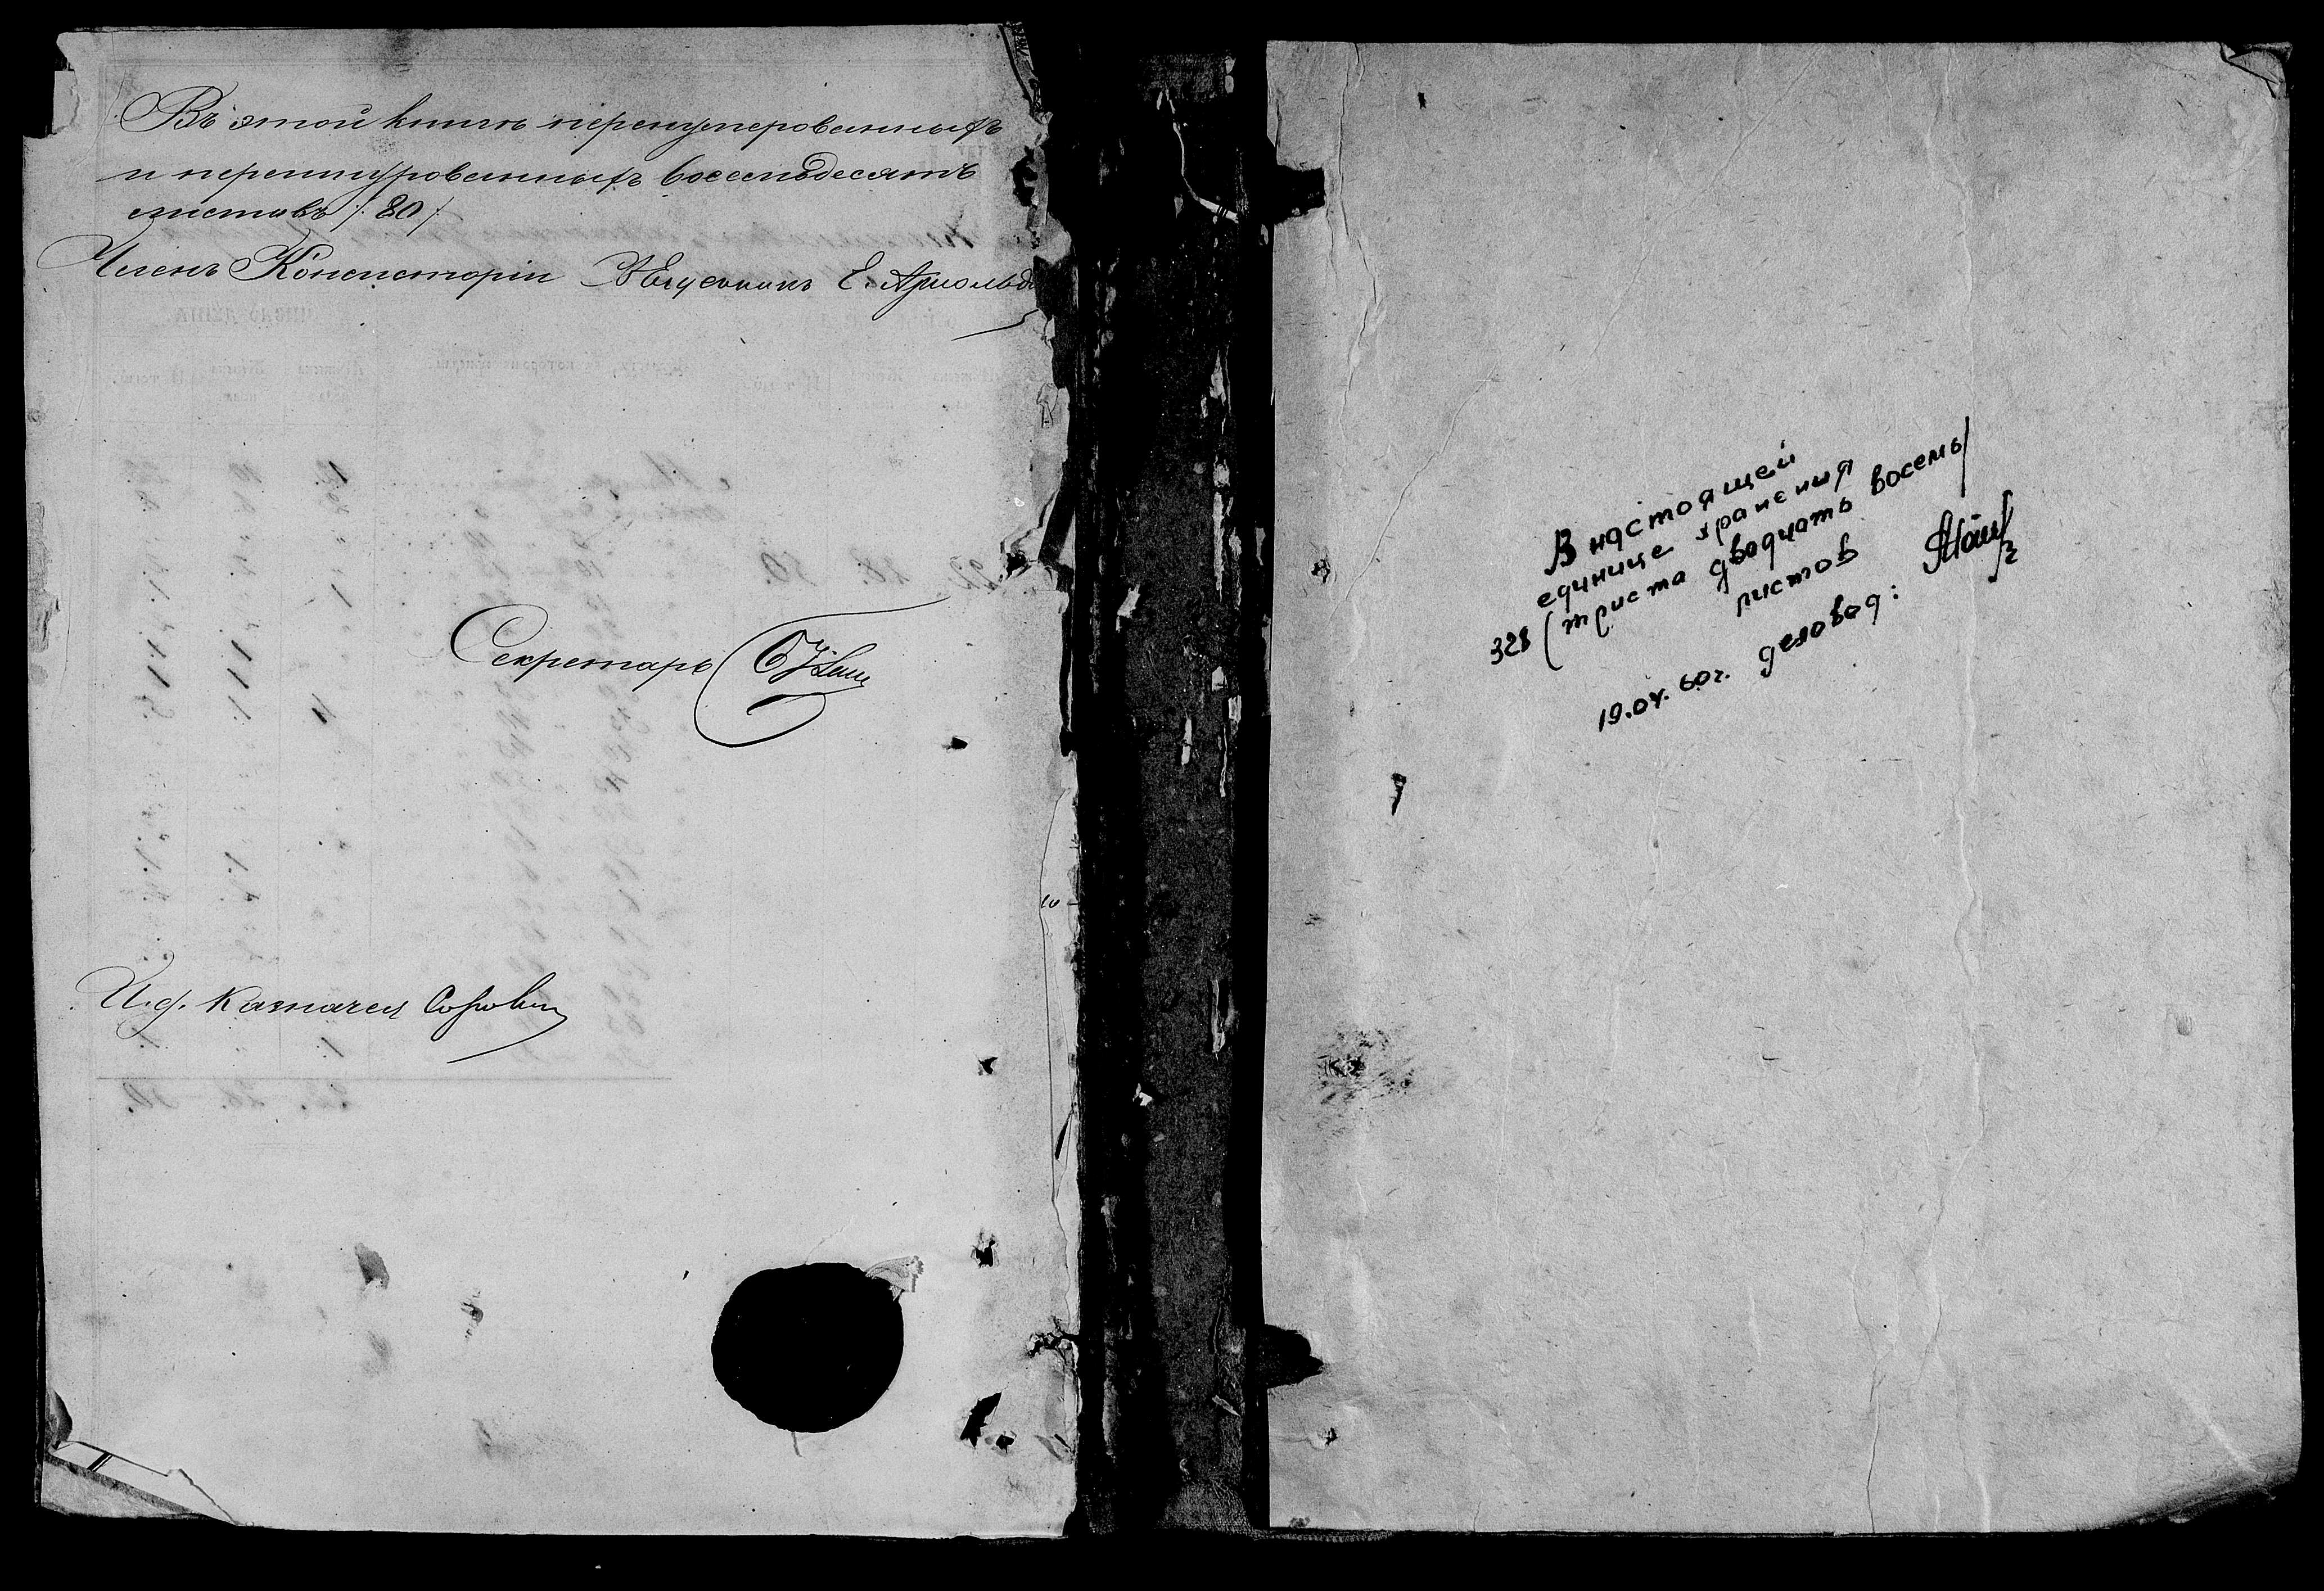 Въ этой книгѣ перенумерованныхъ
и перешнурованныхъ восемьдесятъ
листовъ /:80/:
Членъ Консисторіи Е. Арнольдъ
Секретарь
И.д. Казначея
В настоящей
единице хранения
328 (триста двадцать восемь)
листов
19.04.60г. деловод: